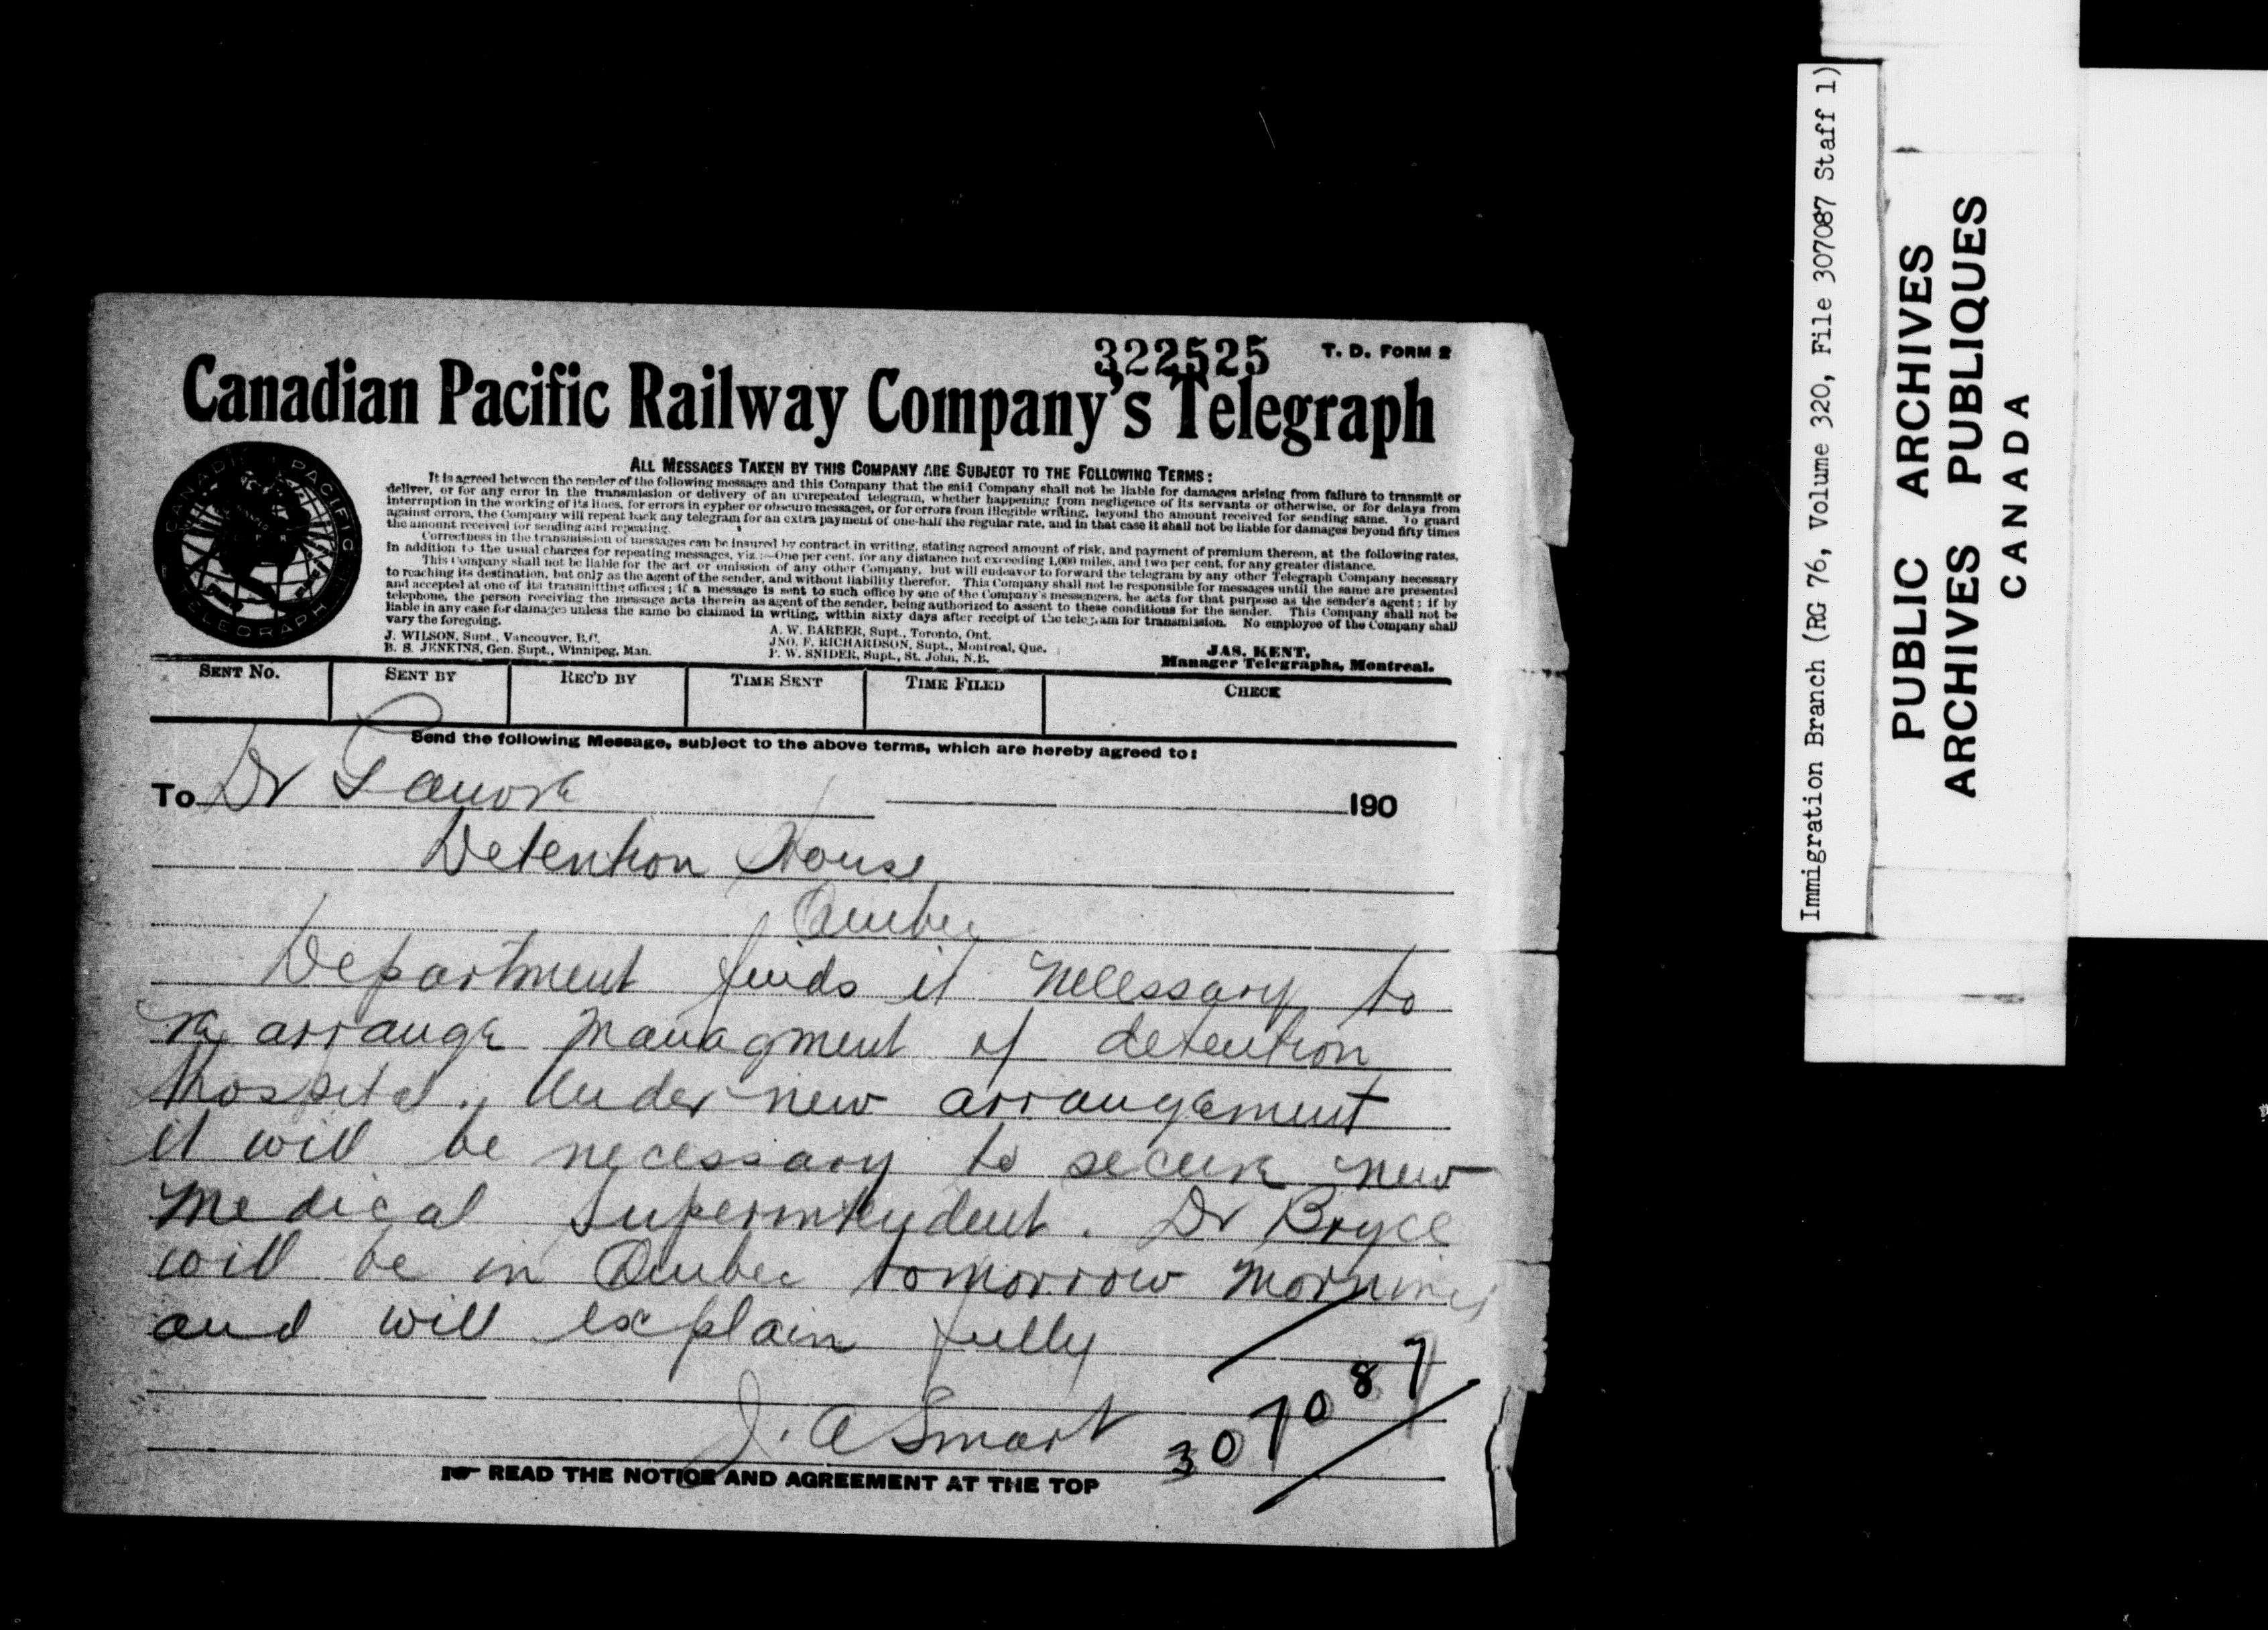 322525 T. D. FORM 2
Canadian Pacific Railway Company's Telegraph
ALL MESSAGES TAKEN BY THIS COMPANY ARE SUBJECT TO THE FOLLOWING TERMS:
It is agreed between the sender of the following message and this Company that the said Company shall not be liable for damages arising from failure to transmit or
deliver, or for any error in the transmission or delivery of an unrepeated telegram, whether happening from negligence of its servants or otherwise, or for delays from
interruption in the working of its lines, for errors in cypher or obscure messages, or for errors from illegible writing, beyond the amount received for sending same. To guard
against errors, the Company will repeat back any telegram for an extra payment of one-half the regular rate, and in that case it shall not be liable for damages beyond fifty times
the amount received for sending and repeating.
Correctness in the transmission of messages can be insured by contract in writing, stating agreed amount of risk, and payment of premium thereon, at the following rates,
in addition to the usual charges for repeating messages, viz :—One per cent. for any distance not exceeding 1,000 miles, and two per cent. for any greater distance.
This Company shall not be liable for the act or omission of any other Company, but will endeavor to forward the telegram by any other Telegraph Company necessary
to reaching its destination, but only as the agent of the sender, and without liability therefor. This Company shall not be responsible for messages until the same are presented
and accepted at one of its transmitting offices ; if a message is sent to such office by one of the Company's messengers, he acts for that purpose as the sender's agent ; if by
telephone, the person receiving the message acts therein as agent of the sender, being authorized to assent to these conditions for the sender. This Company shall not be
liable in any case for damages unless the same be claimed in writing, within sixty days after receipt of the telegram for transmission. No employee of the Company shall
vary the foregoing.
J. WILSON, Supt., Vancouver, B.C.
B. S. JENKINS, Gen. Supt., Winnipeg, Man.
A. W. BARBER, Supt., Toronto, Ont.
JNO. F. RICHARDSON, Supt., Montreal, Que.
P. W. SNIDER, Supt., St. John, N.B.
JAS. KENT,
Manager Telegraphs, Montreal.
SENT NO. SENT BY REC'D BY TIME SENT TIME FILED CHECK
Send the following Message, subject to the above terms, which are hereby agreed to:
To Dr 190
Detention House
Quebec
Department finds it necessary to
re arrange managment of detention
hospital. Under new arrangement
it will be necessary to secure new
medical superintendent. Dr Bryce
will be in Quebec tomorrow morning
and will explain fully
J. A Smart
307087
READ THE NOTICE AND AGREEMENT AT THE TOP
Immigration Branch (RG 76, Volume 320, File 307087 Staff 1)
PUBLIC ARCHIVES
ARCHIVES PUBLIQUES
CANADA